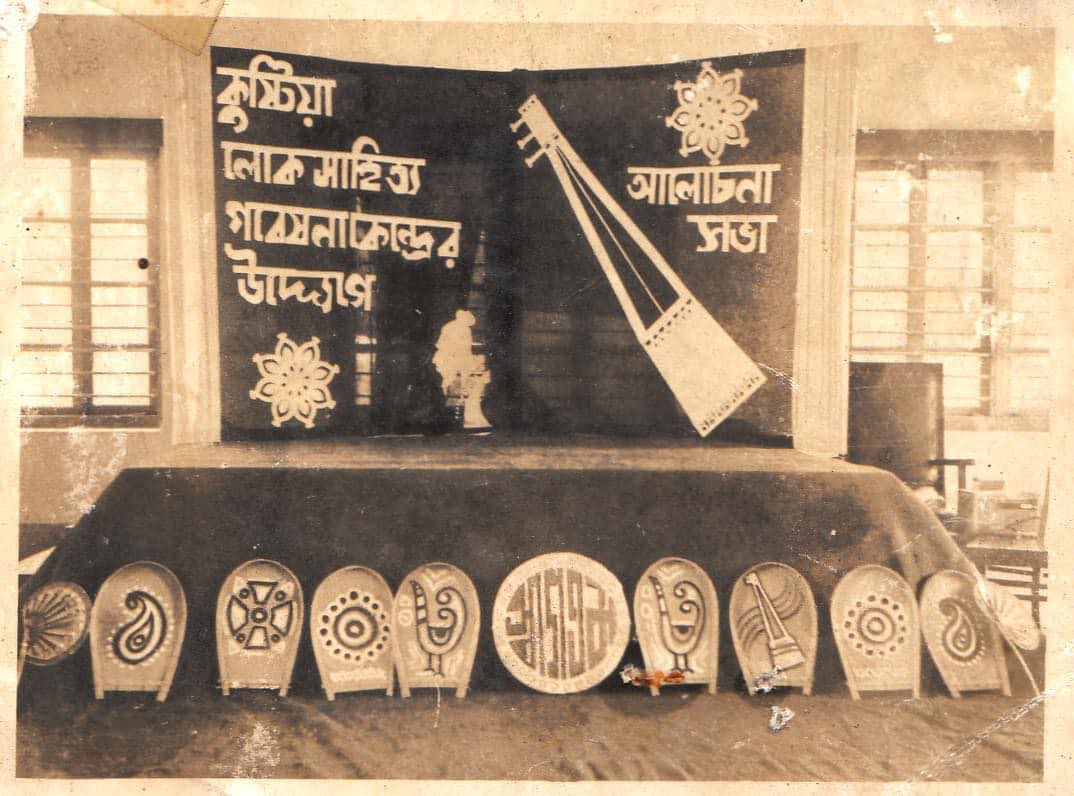 কুষ্টিয়া
লোক সাহিত্য
গবেষনাকেন্দ্রের
উদ্দ্যেগে
আলোচনা
সভা